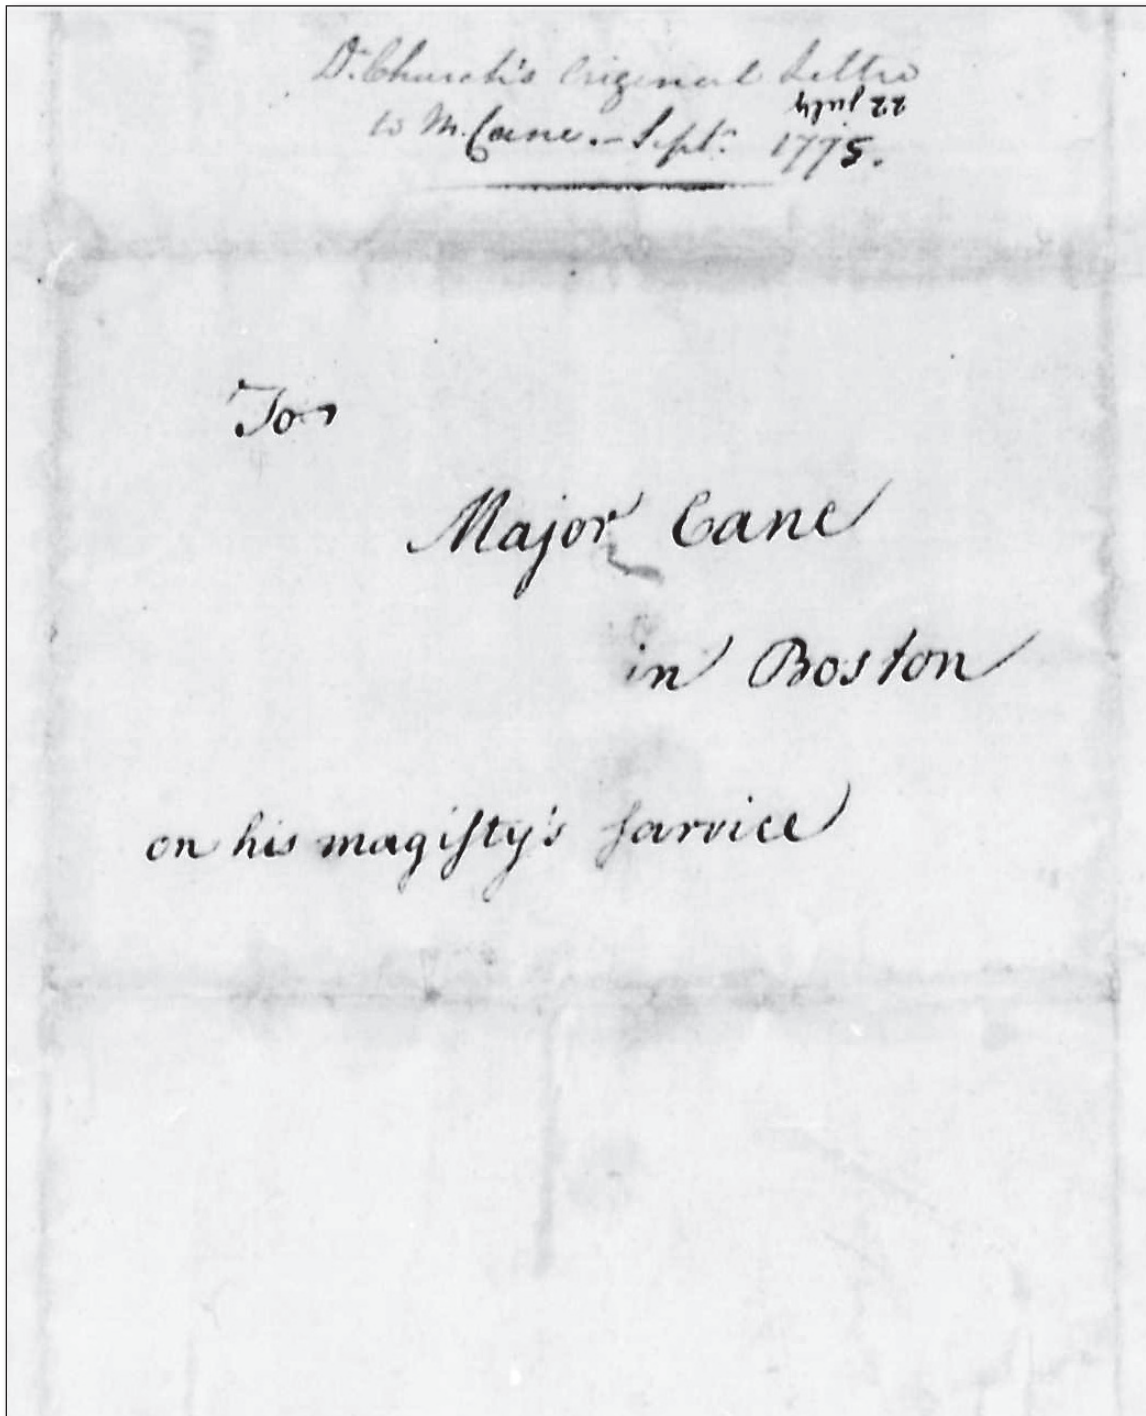 Dr. Church's Original Letter
22 July
to M. Cane. – Septr. 1775.
To
Major Cane
in Boston
on his magisty's sarvice